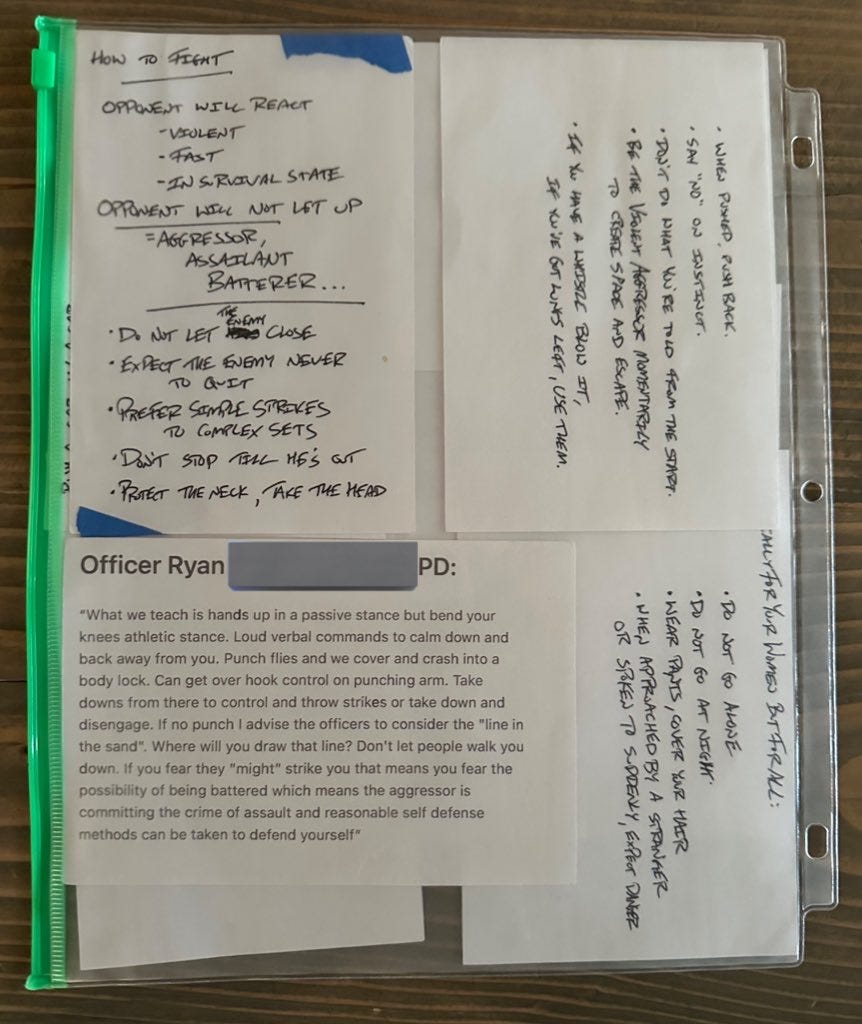 HOW TO FIGHT
OPPONENT WILL REACT
-VIOLENT
-FAST
-IN SURVIVAL STATE
OPPONENT WILL NOT LET UP
=AGGRESSOR,
ASSAILANT
BATTERER...
• DO NOT LET THE ENEMY CLOSE
• EXPECT THE ENEMY NEVER
TO QUIT
• PREFER SIMPLE STRIKES
TO COMPLEX SETS
• DON'T STOP TILL HE'S OUT
• PROTECT THE NECK, TAKE THE HEAD
• WHEN PUSHED, PUSH BACK.
• SAY "NO" ON INSTINCT.
• DON'T DO WHAT YOU'RE TOLD FROM THE START.
• BE THE VIOLENT AGGRESSOR MOMENTARILY
TO CREATE SPACE AND ESCAPE.
• IF YOU HAVE A WHISTLE BLOW IT,
IF YOU'VE GOT LUNGS LEFT, USE THEM.
Officer Ryan PD:
“What we teach is hands up in a passive stance but bend your
knees athletic stance. Loud verbal commands to calm down and
back away from you. Punch flies and we cover and crash into a
body lock. Can get over hook control on punching arm. Take
downs from there to control and throw strikes or take down and
disengage. If no punch I advise the officers to consider the "line in
the sand". Where will you draw that line? Don't let people walk you
down. If you fear they "might" strike you that means you fear the
possibility of being battered which means the aggressor is
committing the crime of assault and reasonable self defense
methods can be taken to defend yourself”
FOR YOUR WOMEN BUT FOR ALL:
• DO NOT GO ALONE
• DO NOT GO AT NIGHT.
• WEAR PANTS, COVER YOUR HAIR
• WHEN APPROACHED BY A STRANGER
OR SPOKEN TO SUDDENLY, EXPECT DANGER